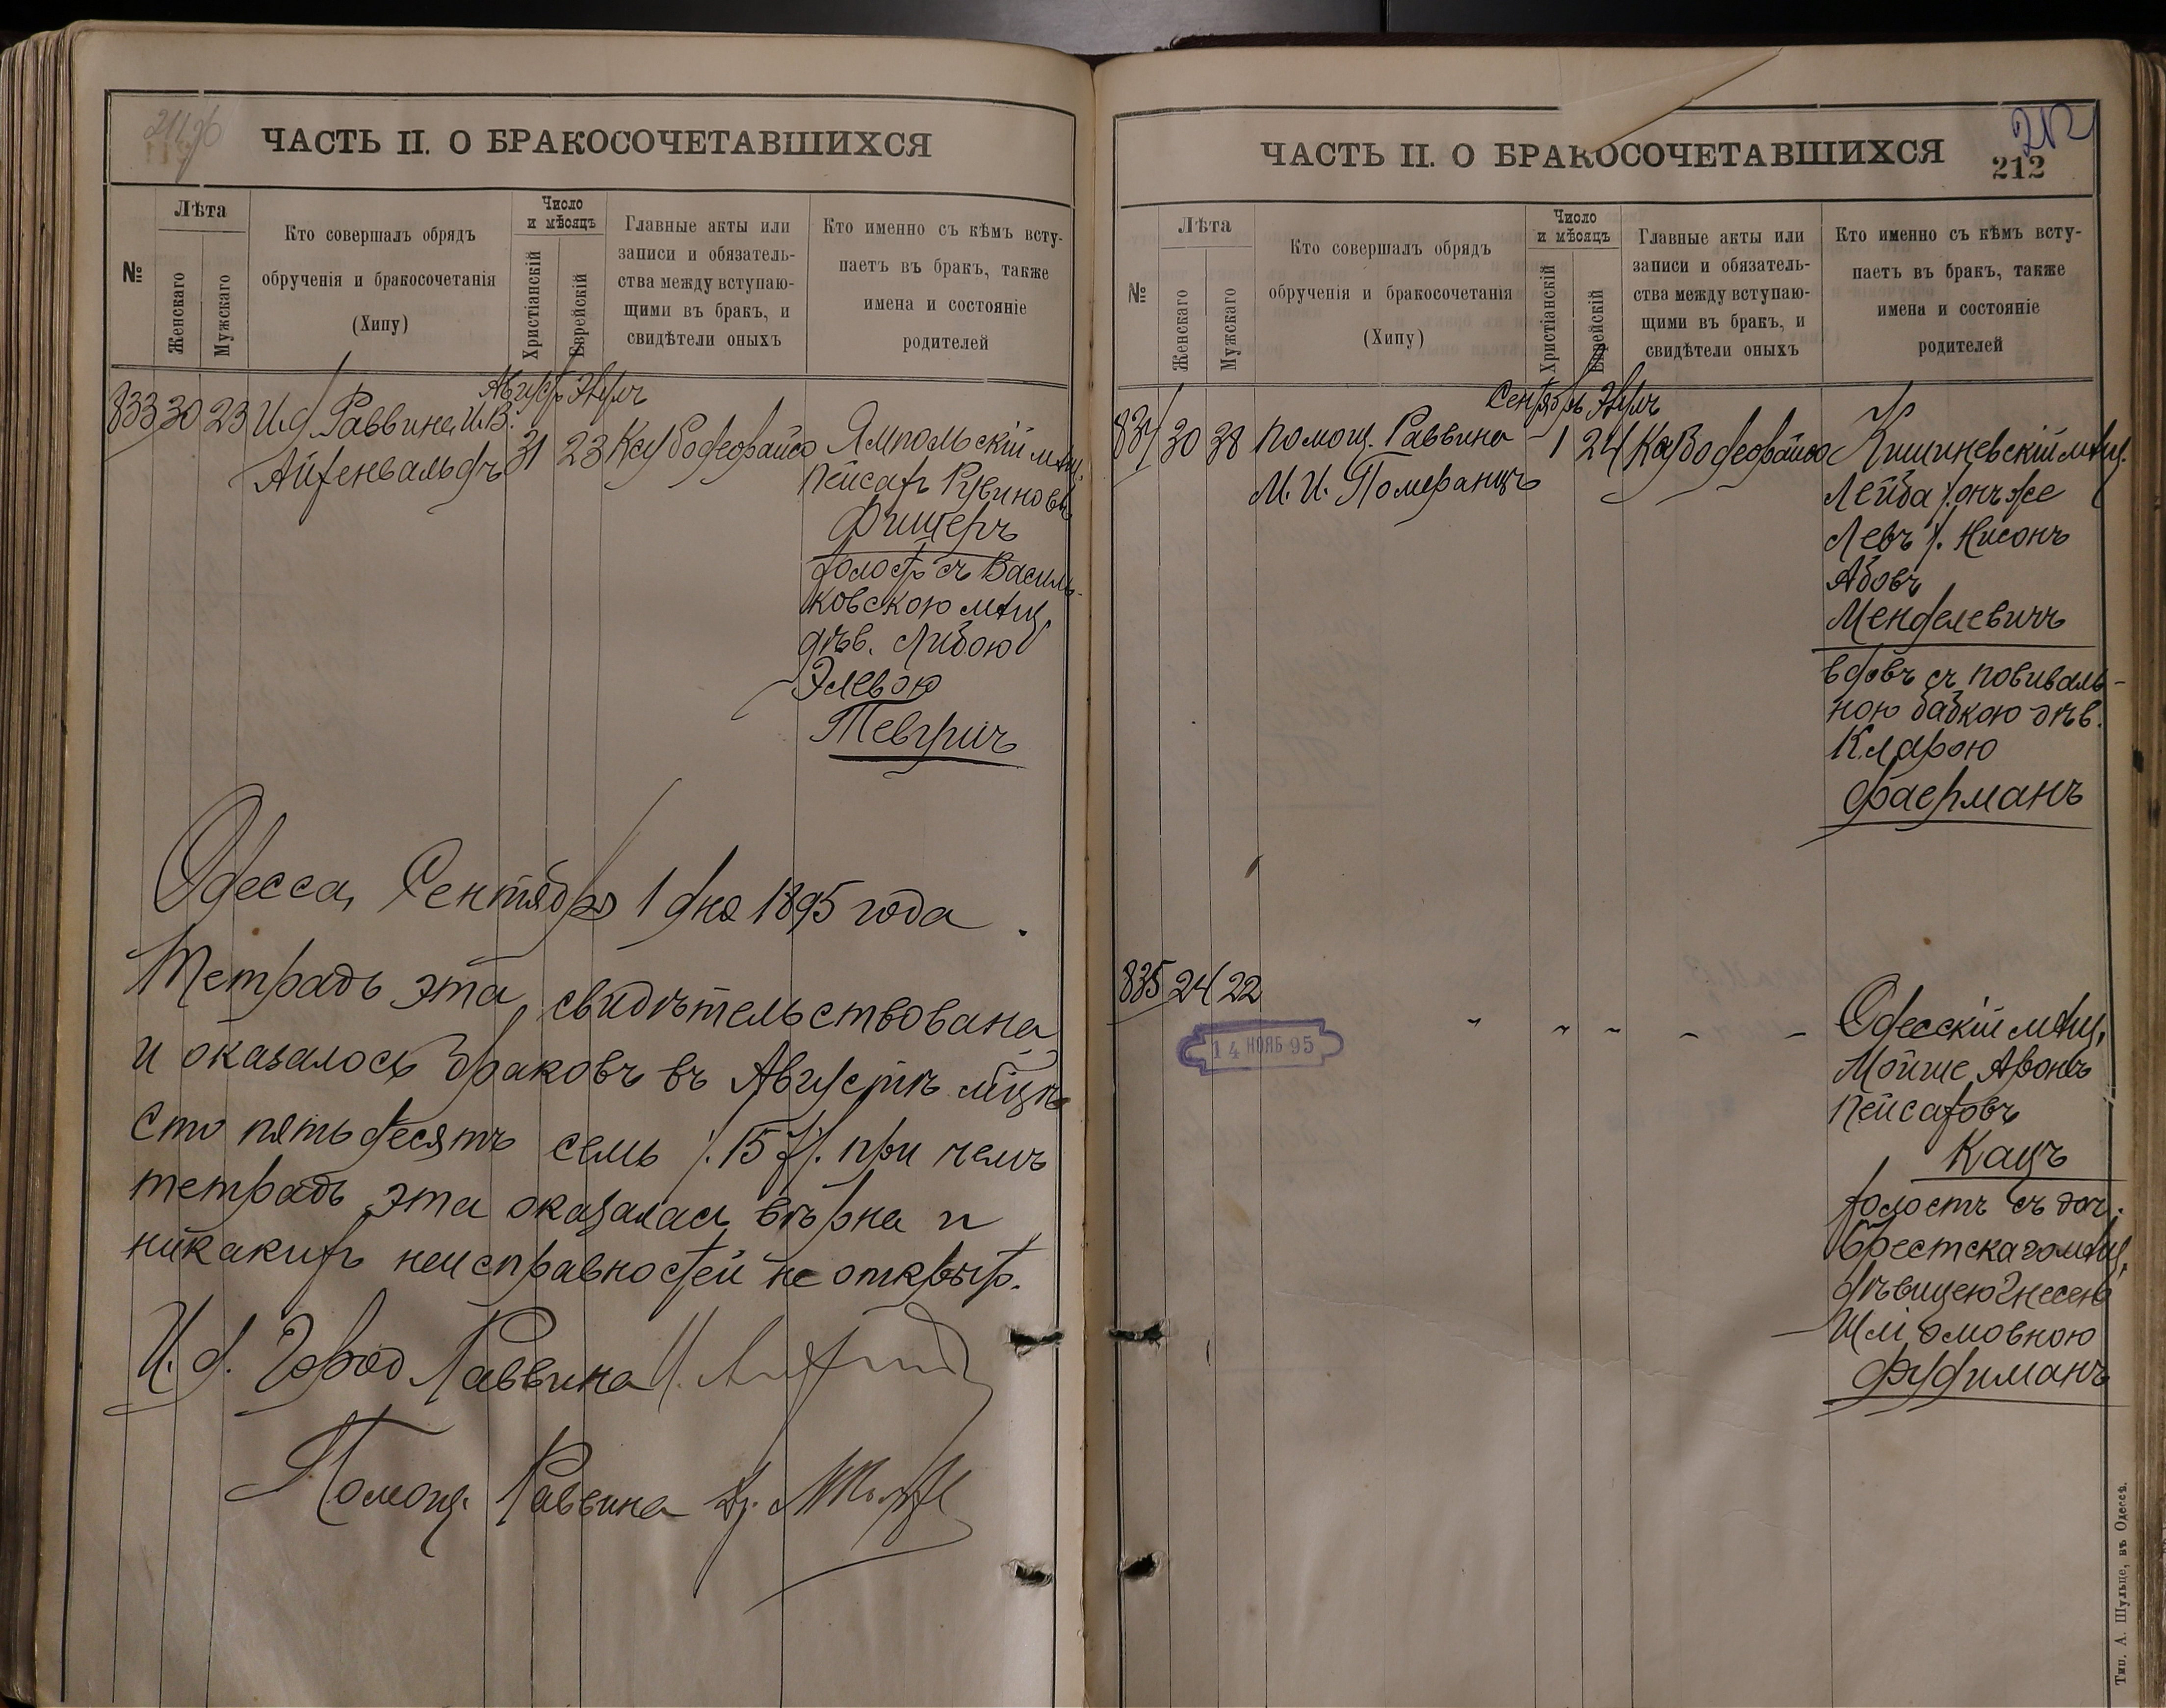 211 об
ЧАСТЬ II. О БРАКОСОЧЕТАВШИХСЯ
№
Лѣта
Женскаго
Мужскаго
Кто совершалъ обрядъ
обрученія и бракосочетанія
(Хипу)
Число
и мѣсяцъ
Христіанскій
Еврейскій
Главные акты или
записи и обязатель-
ства между вступаю-
щими въ бракъ, и
свидѣтели оныхъ
Кто именно съ кѣмъ всту-
паетъ въ бракъ, также
имена и состояніе
родителей
Августъ Элулъ
833 30 23 И. д. Раввина И. В. 31 23
Айзенвальдъ
Ямпольскій мѣщ.
Пейсахъ Рувиновъ
Фишеръ
холостъ съ Василь-
ковскою мѣщ.
дѣв. Либою
Элевою
Одесса, Сентября 1 дня 1895 года.
Тетрадь эта свидѣтельствована
и оказалось браковъ въ Августѣ мѣсяцѣ
сто пятьдесятъ семь /. 157 /. при чемъ
тетрадь эта оказалась вѣрна и
никакихъ неисправностей не открыто.
И. д. Город Раввина
Помощ. Раввина
ЧАСТЬ II. О БРАКОСОЧЕТАВШИХСЯ
212
212
№
Лѣта
Женскаго
Мужскаго
Кто совершалъ обрядъ
обрученія и бракосочетанія
(Хипу)
Число
и мѣсяцъ
Христіанскій
Еврейскій
Главные акты или
записи и обязатель-
ства между вступаю-
щими въ бракъ, и
свидѣтели оныхъ
Кто именно съ кѣмъ всту-
паетъ въ бракъ, также
имена и состояніе
родителей
Сентябрь Элулъ
834 30 38 Помощ. Раввина 1 24
М. И. Померанцъ
Кишиневскій мѣщ.
Лейба /. онъ же
Левъ /. Нисонъ
Абовъ
Менделевичъ
вдовъ съ повиваль-
ною бабкою дѣв.
Кларою
Фаерманъ
835 24 22 " " " " "
14 НОЯБ 95
Одесскій мѣщ.
Мойше Аронъ
Пейсаховъ
Кацъ
холостъ съ доч.
Брестскаго мѣщ.
дѣвицею Гнесею
Шліомовною
Фридманъ
Тип. А. Шульце, въ Одессѣ.